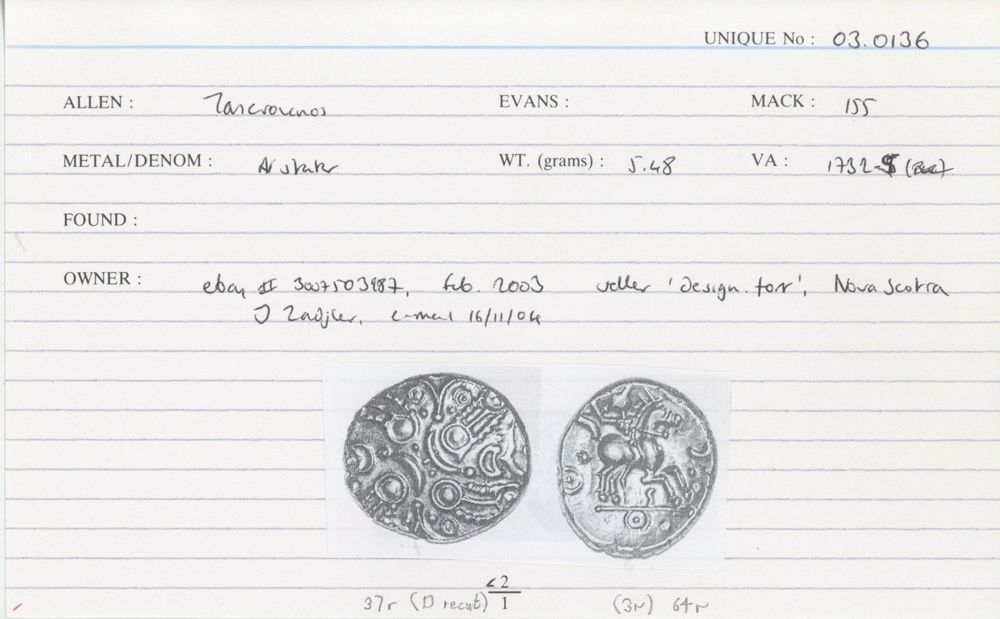 UNIQUE No : 03.0136
ALLEN : Tasciovanos EVANS : MACK : 155
METAL/DENOM : AV stater WT. (grams) : 5.48 VA : 1732
FOUND :
OWNER : ebay II 3007503987, Feb. 2003 seller 'design.torr', Nova Scotia
J e-mail 16/11/04
<2
1
37r (D recut) (3r) 64r